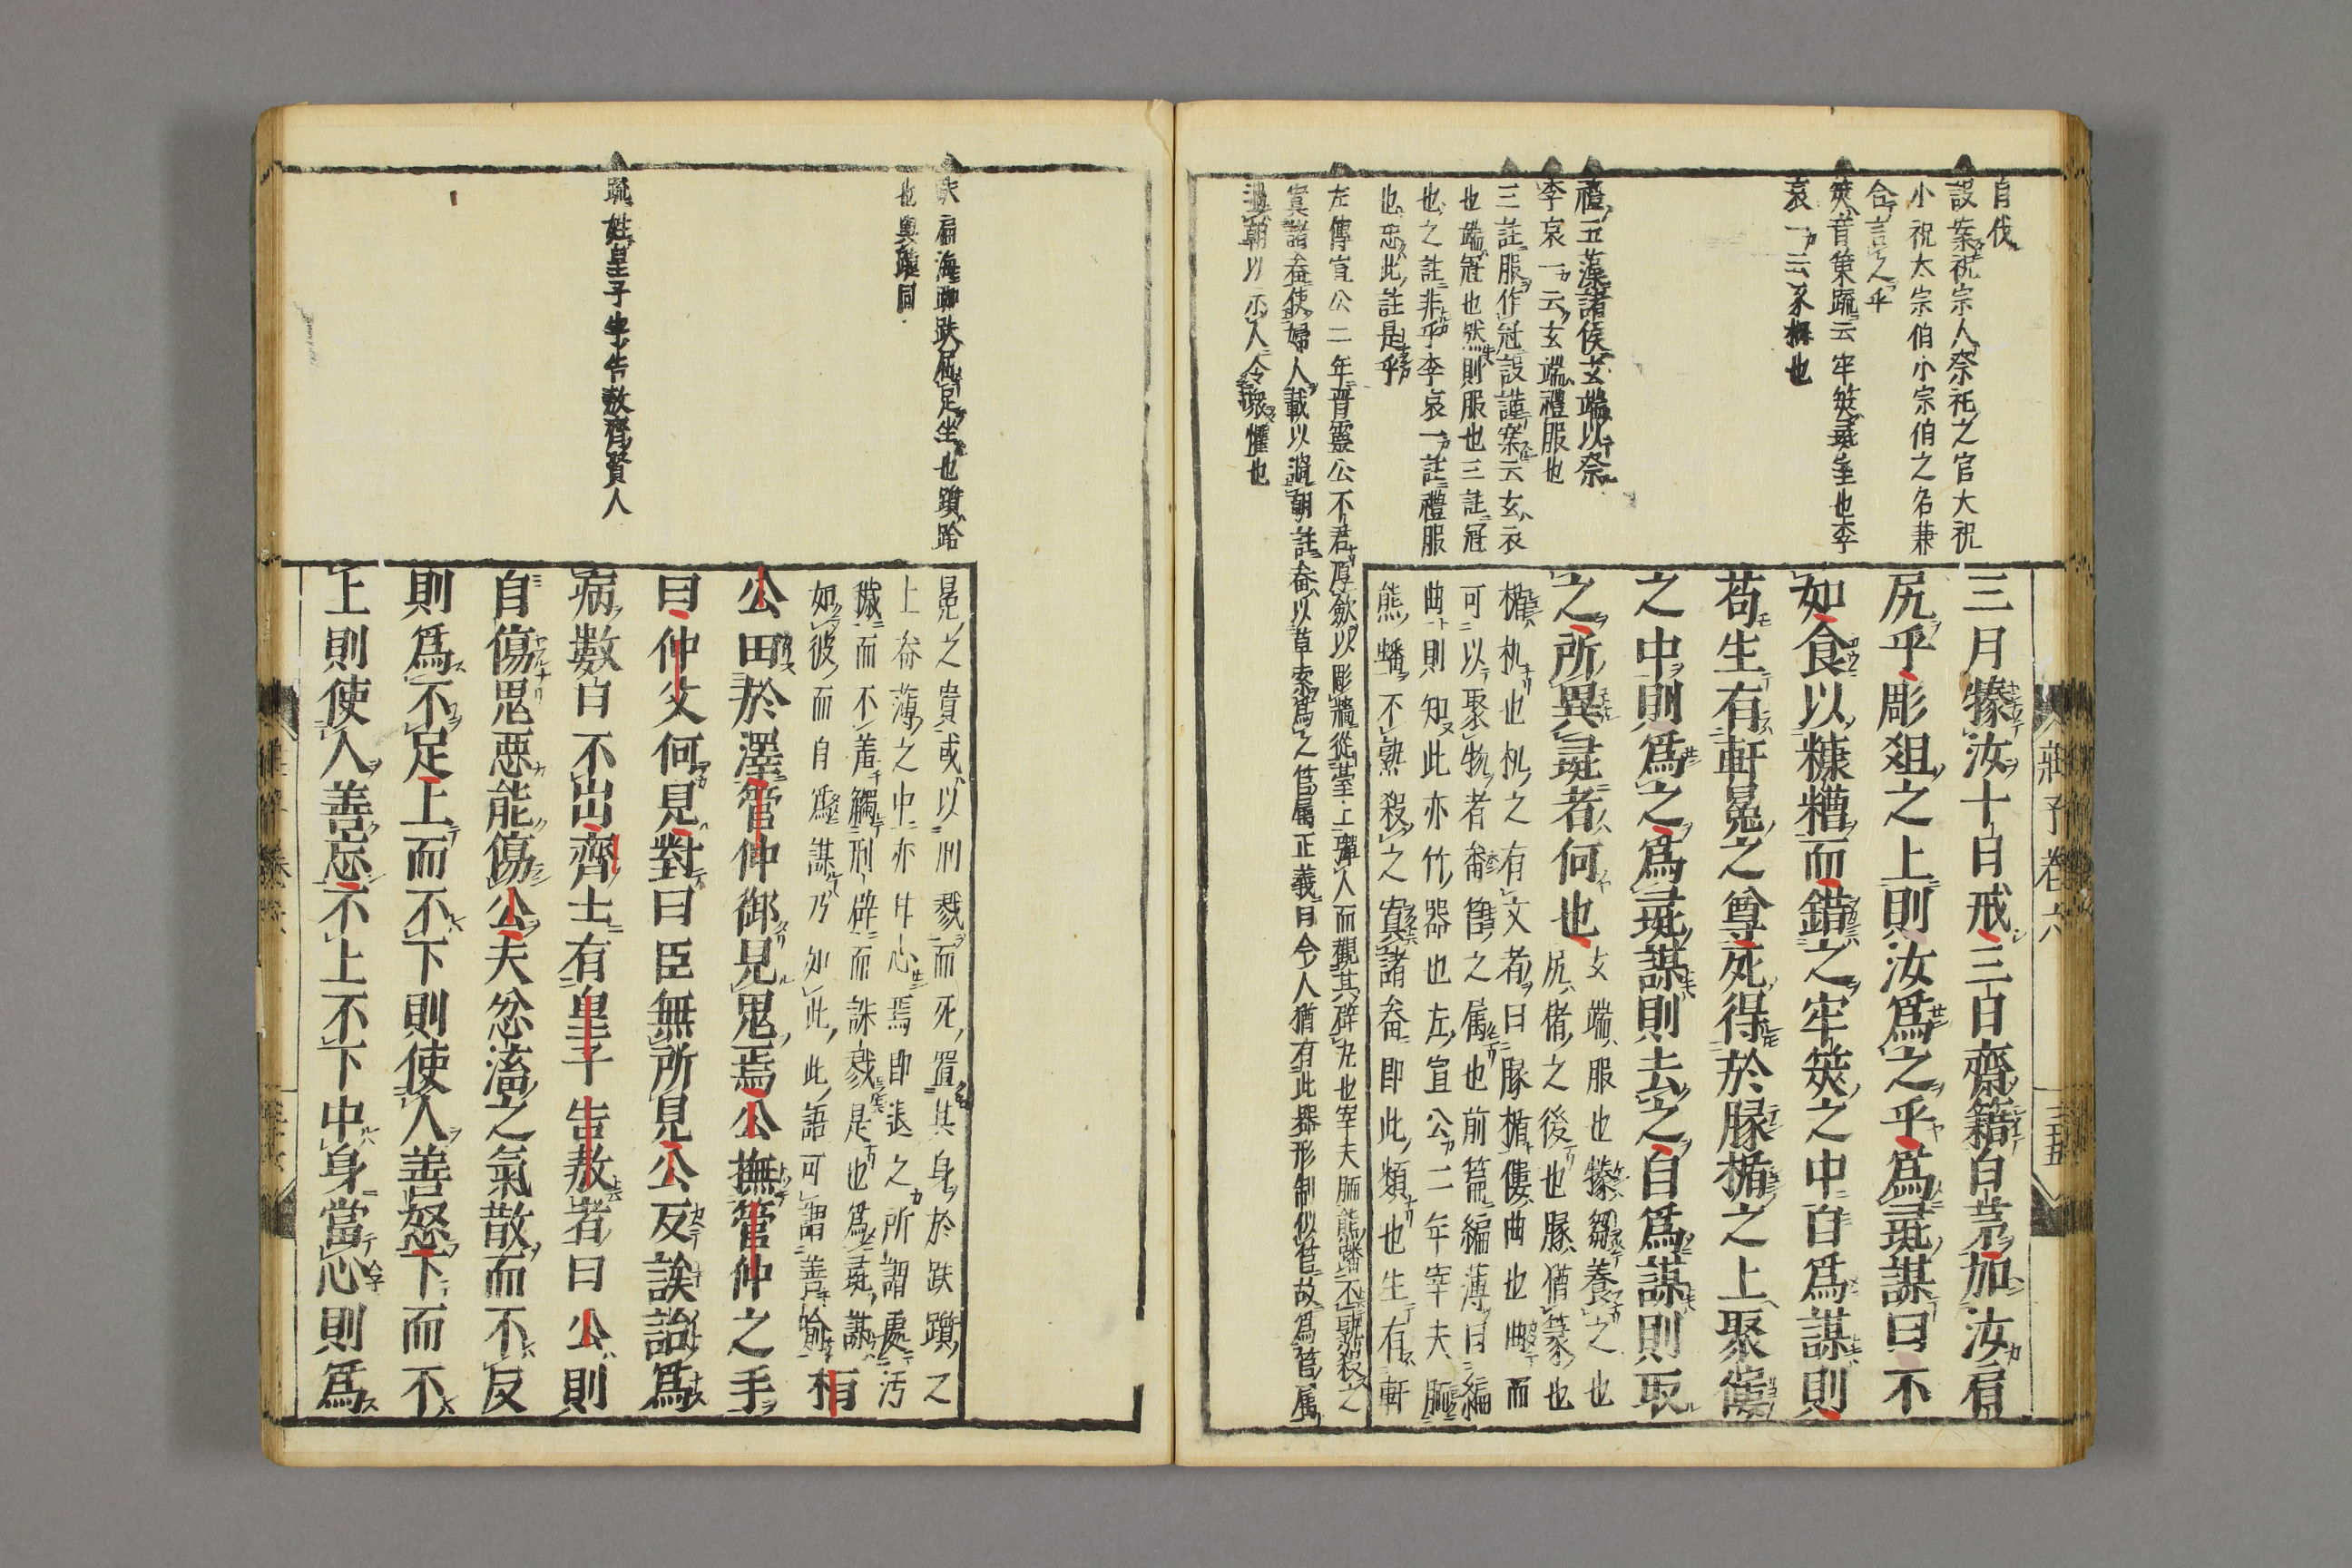 自伐
設案祝宗人祭祀之官大祝
小祝太宗伯小宗伯之名兼
合言之乎
筴音策疏云牢筴彘室也李
哀一云豕柵也
禮玉藻諸侯玄端以祭
李哀一云玄端禮服也
三註服作冠設謹案云玄衣
也端冠也然則服也三註冠
也之註非乎李哀一註禮服
也恐此註是乎
左傳宣公二年晉靈公不君厚歛以彫牆從臺上彈人而觀其辟丸也宰夫胹熊蹯不熟殺之
寘諸畚使婦人載以過朝註畚以草索爲之筥属正義曰今人猶有此器形制似筥故爲筥属
過朝以示人令衆懼也
莊子卷六 三十五
三月㹖汝十日戒三日齋籍白茅加汝肩
尻乎彫爼之上則汝爲之乎爲彘謀曰不
如食以糠糟而錯之牢筴之中自爲謀則
苟生有軒冕之尊死得於腞楯之上聚僂
之中則爲之爲彘謀則去之自爲謀則取
之所異彘者何也
玄端服也㹖芻養之也
尻脊之後也腞猶篆也
楯机也机之有文者曰腞楯僂曲也曲而
可以聚物者畚筥之属也前篇編薄曰編
曲則知此亦竹器也左宣公二年宰夫胹
熊蟠不熟殺之寘諸畚即此類也生有軒
冕之貴或以刑戮而死置其身於跌躓之
上畚薄之中亦甘心焉即退之所謂處汚
穢而不羞觸刑辟而誅戮是也爲彘謀
如彼而自爲謀乃如此此語可謂善喻
桓
公田於澤管仲御見鬼焉公撫管仲之手
曰仲父何見對曰臣無所見公反誒詒爲
病數日不出齊士有皇子告敖者曰公則
自傷鬼惡能傷公夫忿滀之氣散而不反
則爲不足上而不下則使人善怒下而不
上則使人善忘不上不下中身當心則爲
趺扁海即趺屈足坐也躓跲
也與躓同
疏姓皇子字告敖齊賢人